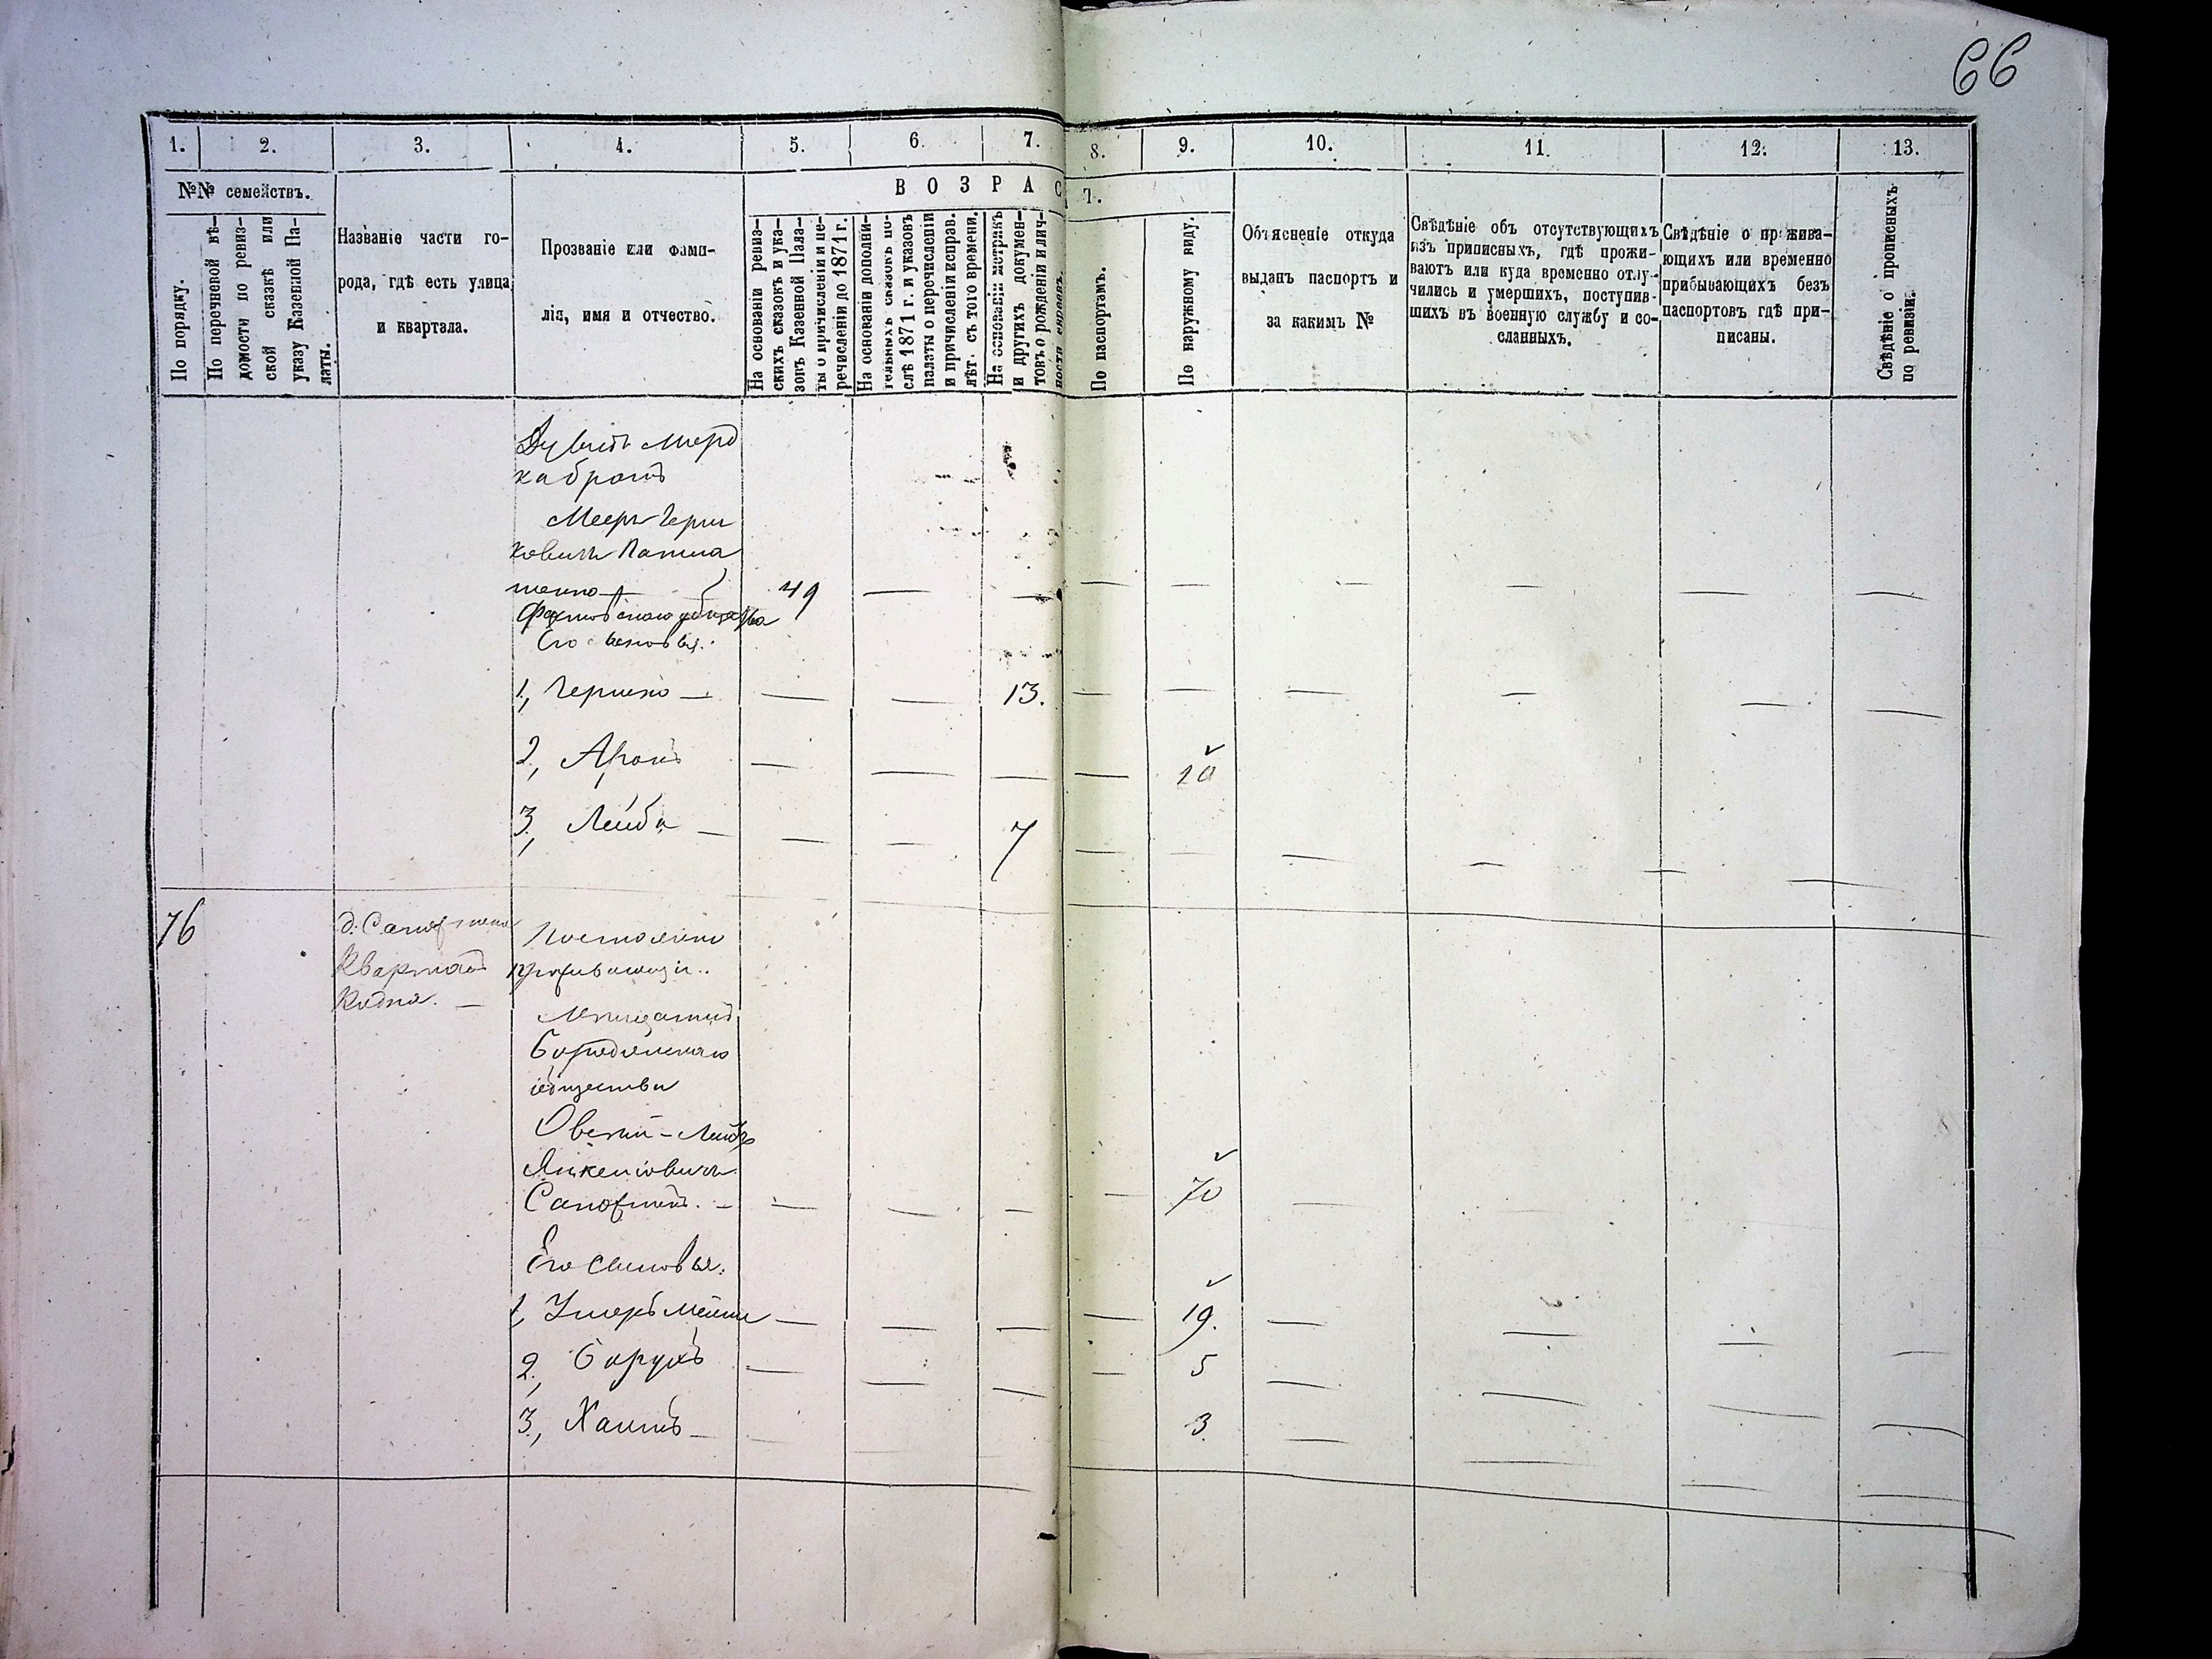 66
1. 2. 3. 4. 5. 6. 7. 8. 9. 10. 11. 12. 13.
№№ семействъ.
По порядку.
По перечневой вѣ-
домости по ревиз-
ской сказкѣ или
указу Казенной Па-
латы.
Названіе части го-
рода, гдѣ есть улица
и квартала.
Прозваніе или фами-
лія, имя и отчество.
ВОЗРАС Т.
На основаніи ревиз-
скихъ сказокъ и ука-
зовъ Казенной Пала-
ты о причисленіи и пе-
речисленіи до 1871 г.
На основаніи дополни-
тельныхъ сказокъ по-
слѣ 1871 г. и указовъ
палаты о перечисленіи
и причисленіи исправ.
лѣт. съ того времени.
На основаніи метрикъ
и другихъ докумен-
товъ о рожденіи и лич-
ности евреевъ.
По паспортамъ.
По наружному виду.
Объясненіе откуда
выданъ паспортъ и
за какимъ №
Свѣдѣніе объ отсутствующихъ
изъ приписныхъ, гдѣ прожи-
ваютъ или куда временно отлу-
чились и умершихъ, поступив-
шихъ въ военную службу и со-
сланныхъ.
Свѣдѣніе о прожива-
ющихъ или временно
прибывающихъ безъ
паспортовъ гдѣ при-
писаны.
Свѣдѣніе о прописныхъ
по ревизіи.
братъ
Мееръ Герш
ковичъ
49 — — — — — — — —
Его сыновья:
1, Гершко — — — 13. — — — — — —
2, Аронъ — — — — 10
3, Лейба — — — 7 — — — — — —
76 Кварталъ Постоянно
проживающіе.
общества
Лейбъ
Янкелевичъ
— — — — 70 —
Его сыновья:
1, — — — — 19. — — — —
2, Борухъ — — — — 5 — — — —
3, Хаимъ — — 3 — — — —